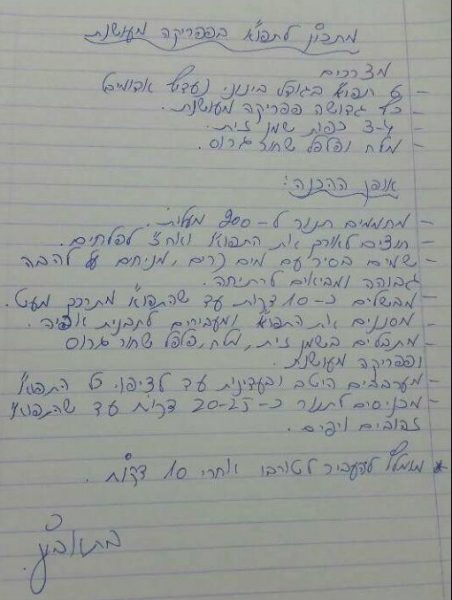 מתכון לתפו"א בפפריקה מעושנת
מצרכים
- 6 תפו"א בגודל בינוני (עדיף אדומים)
- כף גדושה פפריקה מעושנת.
- 3-4 כפות שמן זית.
- מלח ופלפל שחור גרוס.
אופן ההכנה:
- מחממים תנור ל-200 מעלות.
- חוצים לאורך את התפוא' ואח"כ לפלחים.
- שמים בסיר עם מים קרים, מניחים על להבה
גבוהה ומביאים לרתיחה.
- מבשלים כ-10 דקות עד שהתפו"א מתרכך מעט.
- מסננים את התפו"א ומעבירים לתבנית אפיה.
- מתבלים בשמן זית, מלח, פלפל שחור גרוס
ופפריקה מעושנת.
- מערבבים היטב ובעדינות עד לציפוי כל התפוא'
- מכניסים לתנור כ-20-25 דקות עד שהתפוא'
זהובים ויפים.
* מומלץ להעביר לטורבו אחרי 10 דקות.
בתאבון.